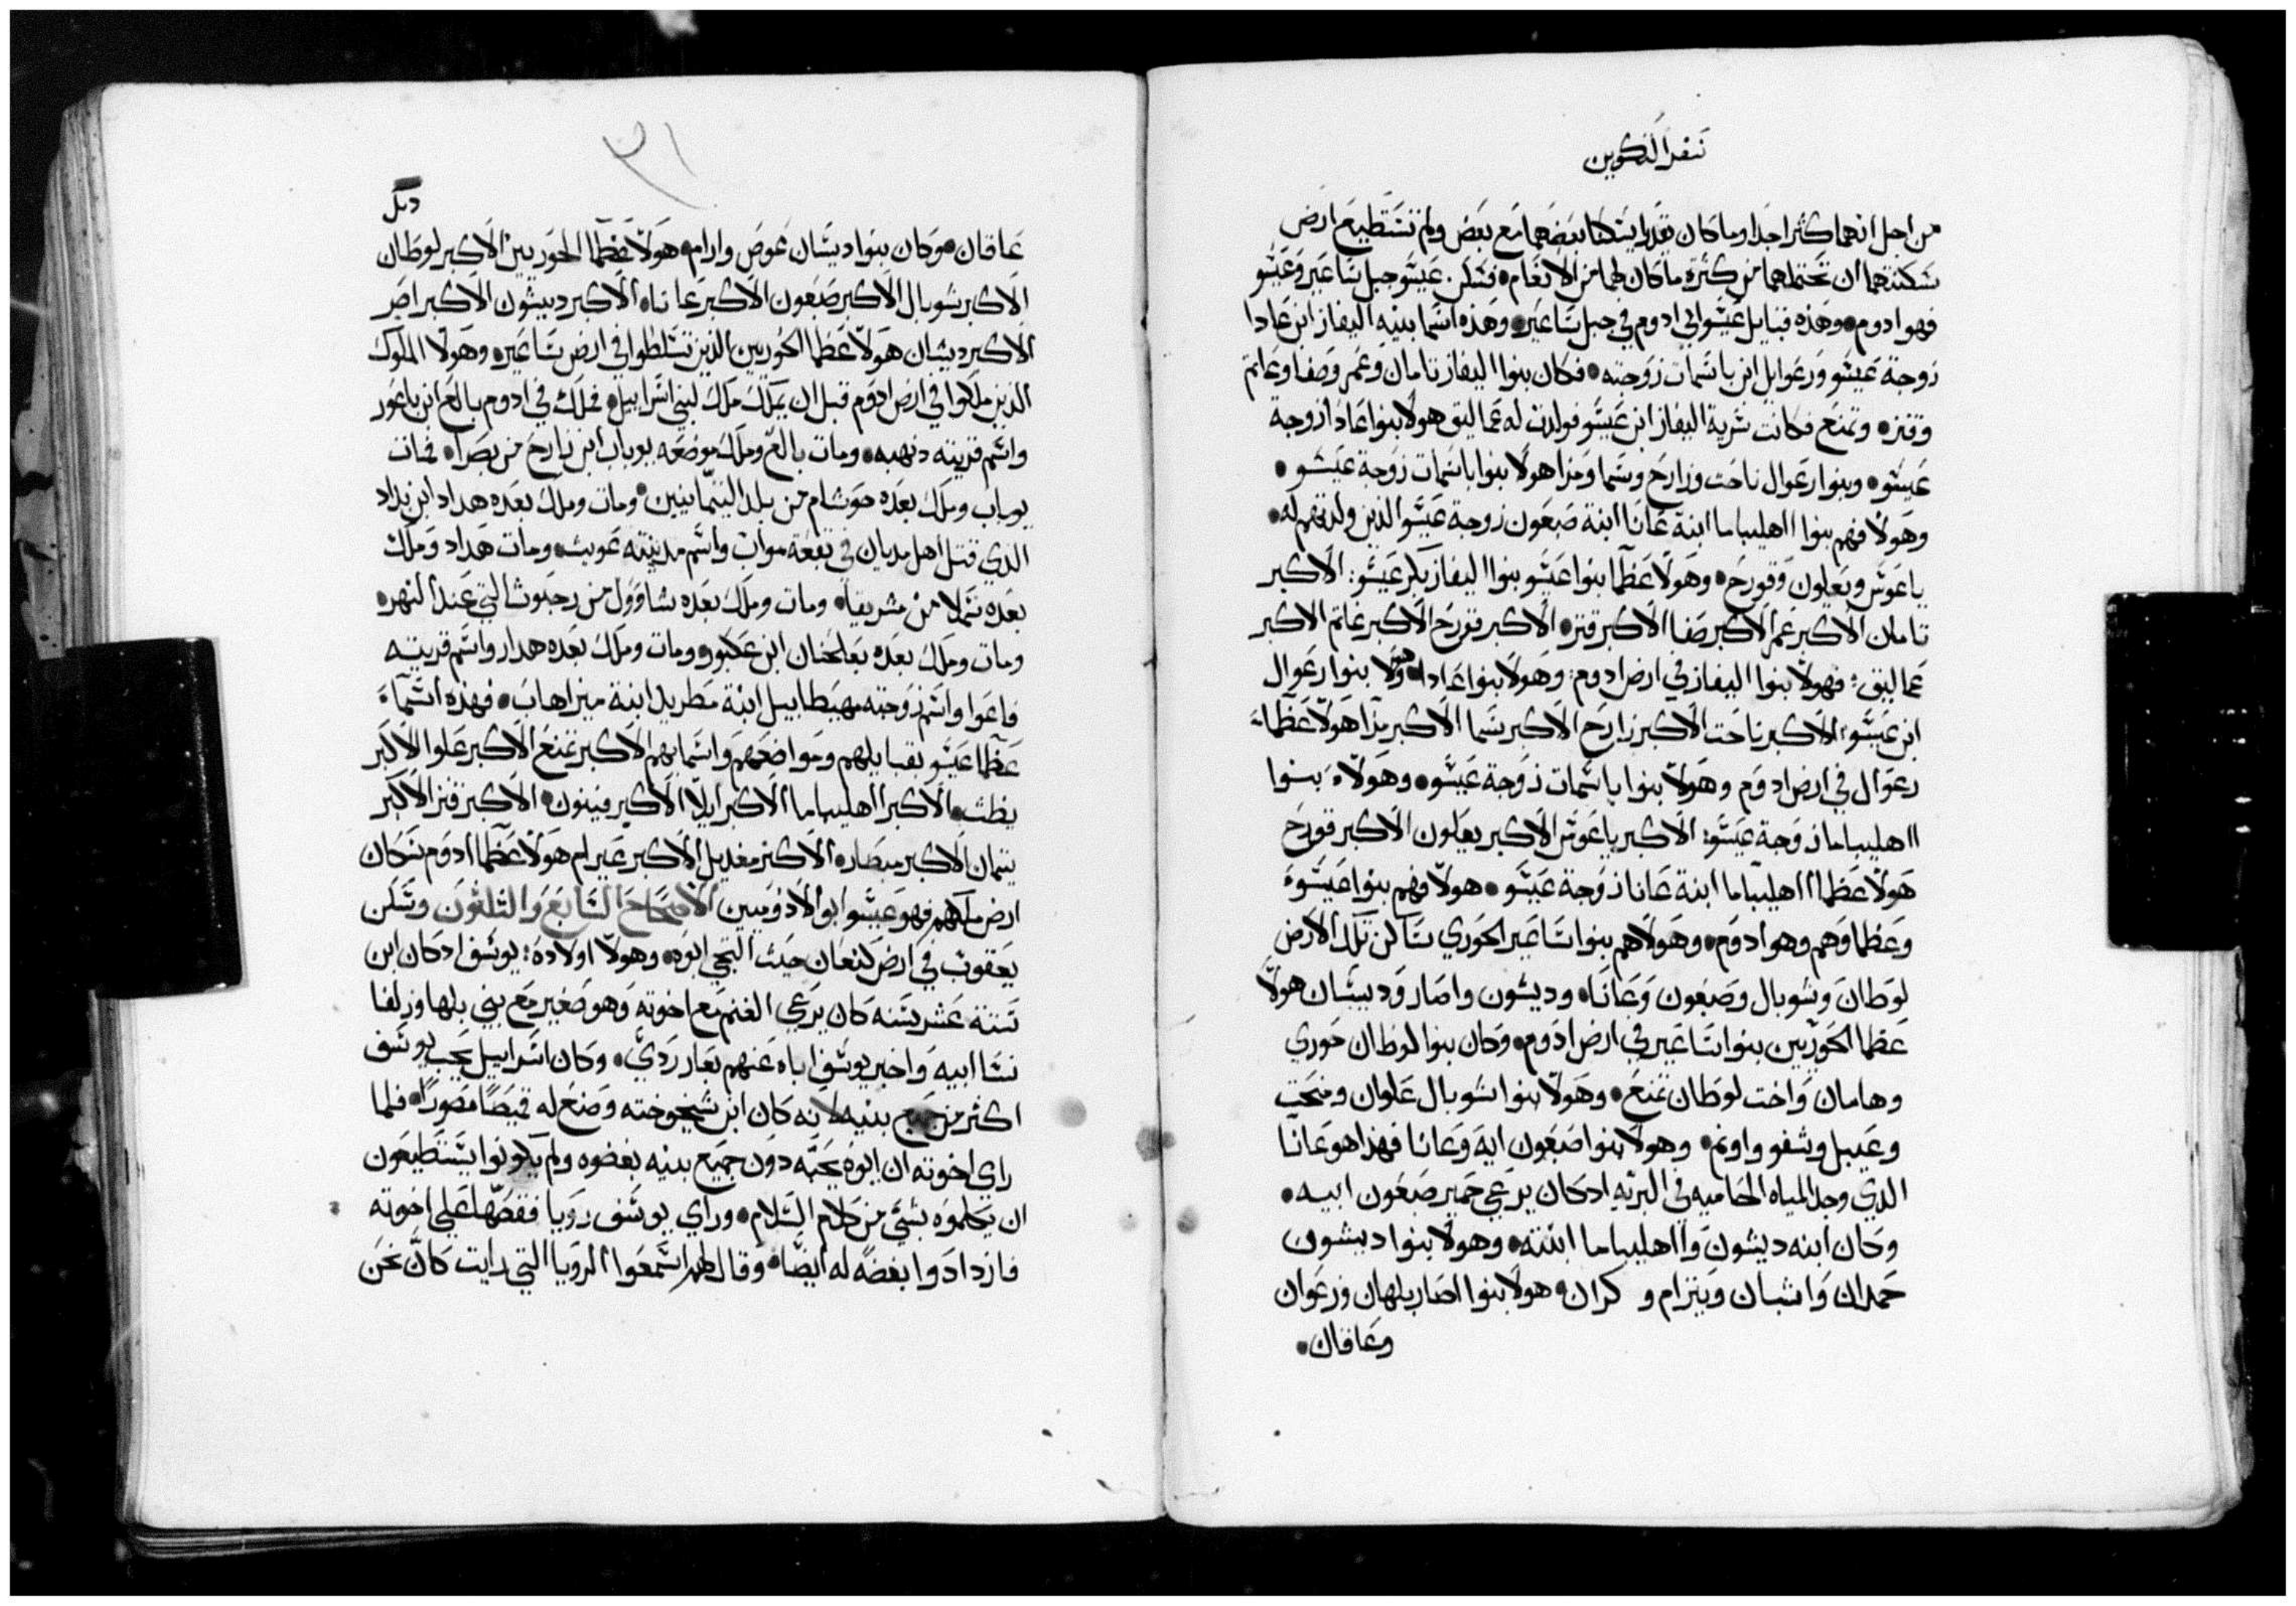 سفر التكوين
من اجل انهما كثرا جدا وما كان يقدرا يسكنا بعضهما مع بعض ولم تستطيع ارض
سكنتهما ان تحتملهما من كثرة ما كان لهما من الانعام • فسكن عيسو جبل ساعير وعيسو
فهو ادوم • وهذه قبايل عيسو ابي ادوم في جبل ساعير • وهذه اسما بنيه اليفاز ابن عادا
زوجة عيسو ورعوايل ابن باسمات زوجته • فكان بنوا اليفاز تامان وعمر وصفا وعاتم
وقنز • وتمنع فكانت سرية اليفاز ابن عيسو فولدت له عماليق هولا بنوا عادا زوجة
عيسو • وبنوا رعوال ناحت وزارح وسما ومزا هولا بنوا باسمات زوجة عيسو •
وهولا فهم بنوا ااهليباما ابنة عانا ابنة صبعون زوجة عيسو الذين ولدتهم له •
ياعوش ويعلون وقورح • وهولا عظما بنوا عيسو بنوا اليفاز بكر عيسو : الاكبر
تامان الاكبر عمر الاكبر صفا الاكبر قنز • الاكبر قورح الاكبر غاتم الاكبر
عماليق : فهولا بنوا اليفاز في ارض ادوم : وهولا بنوا عادا • وهولا بنوا رعوال
ابن عيسو : الاكبر ناحت الاكبر زارح الاكبر سما الاكبر مزا هولا عظماء
رعوال في ارض ادوم وهولا بنوا باسمات زوجة عيسو • وهولاء بنوا
ااهليباما زوجة عيسو : الاكبر ياعوش الاكبر يعلون الاكبر قورح
هولا عظما ااهليباما ابنة عانا زوجة عيسو • هولا فهم بنوا عيسوء
وعظماوهم وهو ادوم • وهولا هم بنوا ساعير الحوري ساكن تلك الارض
لوطان وشوبال وصبعون وعانا • وديشون واصار وديشان هولا
عظما الحوريين بنوا ساعير في ارض ادوم • وكان بنوا لوطان حوري
وهامان واخت لوطان تمنع • وهولا بنوا شوبال علوان ومنحت
وعيبل وشفو واونم • وهولا بنوا صبعون ايه وعانا فهذا هو عانا
الدي وجد المياه الحاميه في البريه ادكان يرعي حمير صبعون ابيه •
وكان ابنه ديشون وااهليباما ابنته • وهولا بنوا ديشون
حمدان واشبان ويتزام و كران • هولا بنوا اصار بلهان وزعوان
وعاقان •
٣١
عاقان • وكان بنوا ديشان عوص وارام • هولا عظما الحوريين الاكبر لوطان
الاكبر شوبال الاكبر صبعون الاكبر عانا • الاكبر ديشون الاكبر اصر
الاكبر ديشان هولا عظما الحوريين الذين تسلطوا في ارض ساعير • وهولا الملوك
الذين ملكوا في ارض ادوم قبل ان يملك ملك لبني اسراييل • فملك في ادوم بالع ابن باعور
واسم قريته دنهبه • ومات بالع وملك موضعه يوباب ابن زارح من بصرا • فمات
يوباب وملك بعده حوشام من بلد التيمانيين • ومات وملك بعده هداد ابن بداد
الدي قتل اهل مديان في بقعة مواب واسم مدينته عويث • ومات هداد وملك
بعده سملا من مشريقا • ومات وملك بعده شاوول من رحبوث التي عند النهر •
ومات وملك بعده بعلحنان ابن عكبور • ومات وملك بعده هدار واسم قريته
فاعوا واسم زوجته مهيطابيل ابنة مطريد ابنة ميزاهاب • فهذه اسماء
عظما عيسو بقبايلهم ومواضعهم واسمايهم الاكبر تمنع الاكبر علوا الاكبر
يظث • الاكبر ااهليباما الاكبر ايلا الاكبر فينون • الاكبر قنز الاكبر
يتمان الاكبر مبصاره الاكبر مغديل الاكبر عيرام هولا عظما ادوم سكان
ارض ملكهم فهو عيسو ابو الادوميين الاصحاح السابع والثلثون وسكن
يعقوب في ارض كنعان حيث التجي ابوه • وهولا اولاده : يوسف ادكان ابن
ستة عشر سنه كان يرعي الغنم مع اخوته وهو صغير مع بني بلها وزلفا
نسا ابيه واخبر يوسف اباه عنهم بعار ردي • وكان اسراييل يحب يوسف
اكثر من جميع بنيه لانه كان ابن شيخوخته وصنع له قميصا مصورا • فلما
راي اخوته ان ابوه يحبه دون جميع بنيه بغضوه ولم يكونوا يستطيعون
ان يكلموه بشي من كلام السلام • وراي يوسف رويا فقصها علي اخوته
فازدادوا بغضه له ايضا • وقال لهم اسمعوا الرويا التي رايت كان نحن